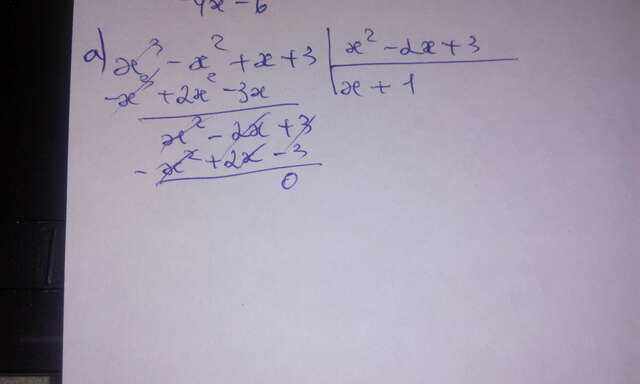 4x - 6
a) x³ - x² + x + 3 | x² - 2x + 3
-x³ + 2x² - 3x | x + 1
x² - 2x + 3
- x² + 2x - 3
0